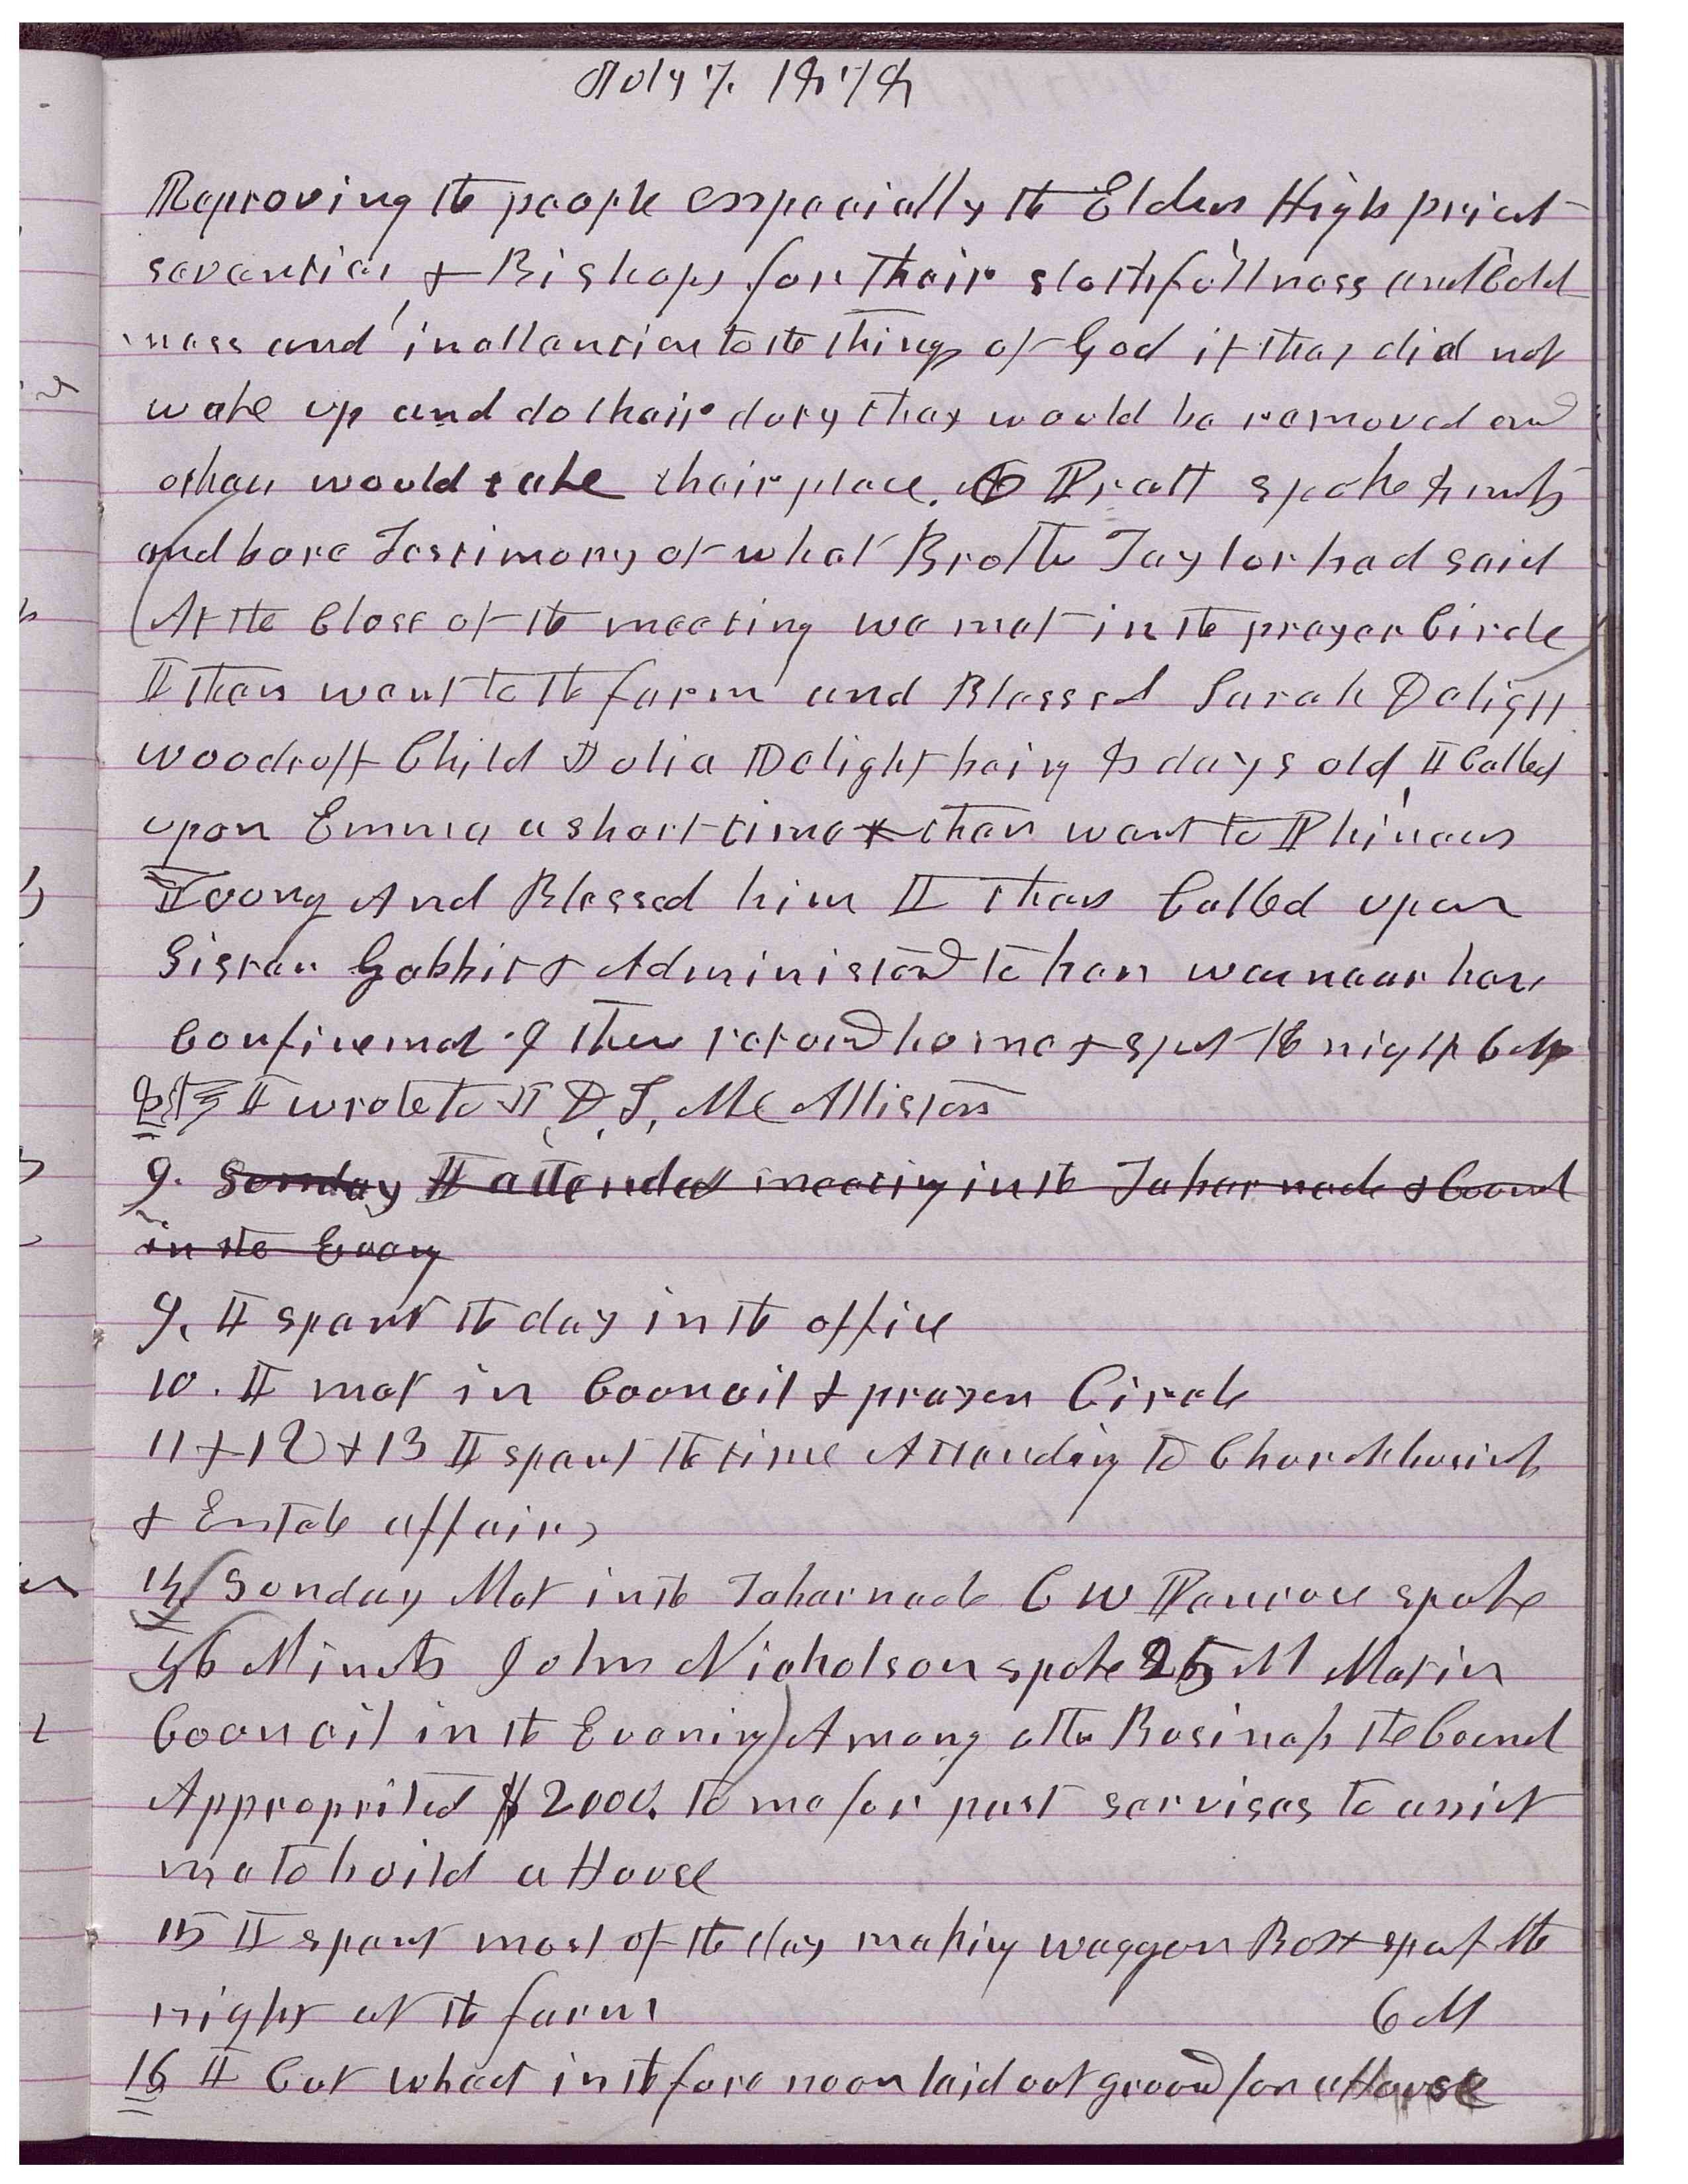 July 7. 1878
Reproving the people esspecially the Elders High priest
seventies & Bishops for their slothfullness and Cold
ness and inattention to the things of God if they did not
wake up and do their duty they would be removed and
others would take their place. O Pratt spoke 8 minuts
and bore Testimony of what Brother Taylor had said
At the Close of the meeting we met in the prayer Circle
I then went to the farm and Blessed Sarah Delight
Woodruff Child Julia Delight being 8 days old I Called
upon Emma a short time & then went to Phineas
Young And Blessed him I then Called upon
Sister Gabbit & Administered to her was near her
Confinemet I then returnd home & spet the night 6 M
8th I wrote to J, D, T, Mc Allister
9. Sunday I attended meeting in the Tabernacle & Council
in the Eveng
9. I spent the day in the office
10. I met in Council & prayer Circle
11 & 12 & 13 I spent the time Attending to Church buisness
& Estate affairs
14 Sunday Met in the Tabernacle C W Penrose spoke
56 Minuts John Nicholson spoke 25 M Met in
Council in the Evening Among other Business the Council
Approprited $2000. to me for past services to assist
me to build a House
15 I spent most of the day making waggon Box & spent the
night at the farm 6 M
16 I Cut wheat in the fore noon laid out ground for a House